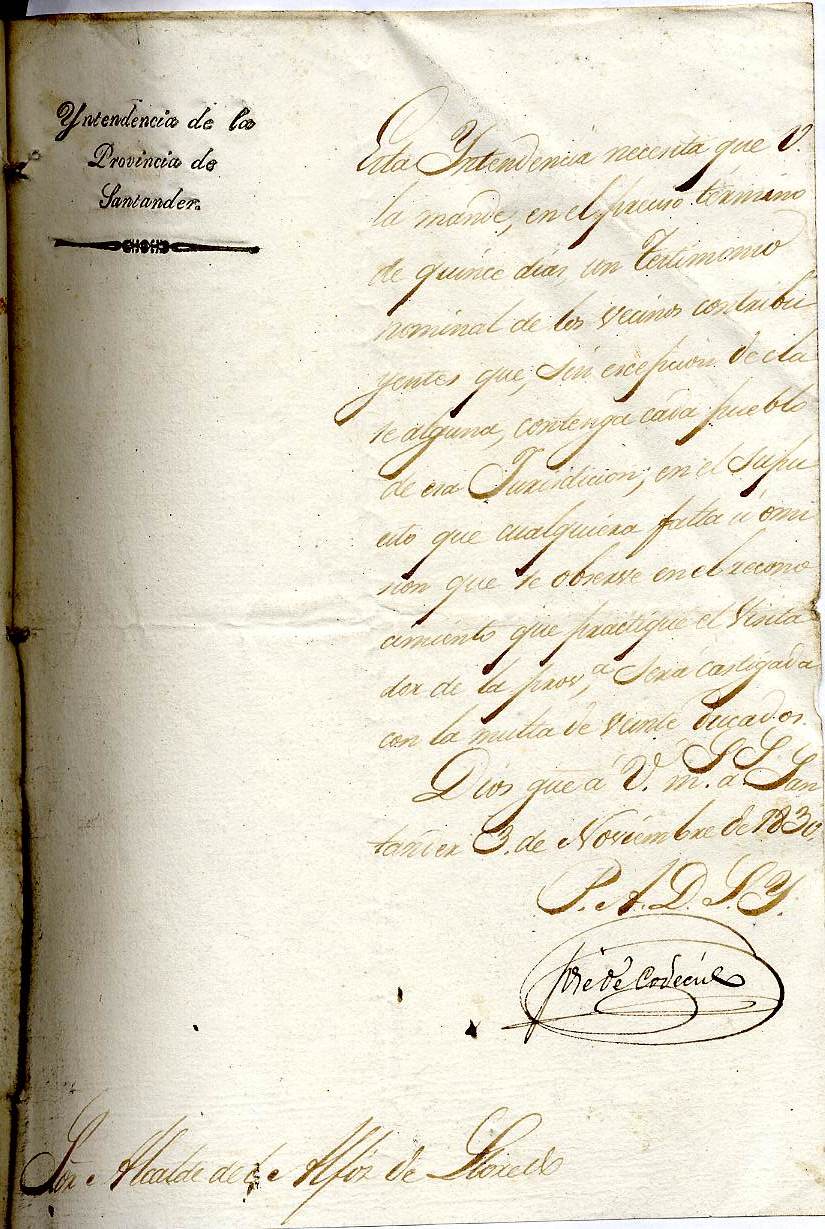 Yntendencia de la
Provincia de
Santander.
Esta Yntendencia necesita que V.
la mande, en el preciso término
de quince dias, un Testimonio
nominal de los vecinos contribu
yentes que, sin excepcion de cla
se alguna, contenga cada pueblo
de esa Jurisdicion; en el supu
esto que cualquiera falta ú omi
sion que se observe en el recono
cimiento que practique el Visita
dor de la prov.a será castigada
con la multa de veinte ducados.
Dios gue á V. m.s a.s San
tander 3. de Noviembre de 1830.
P. A. D. S. Y.
José de
Sor. Alcalde del Alfóz de Lloredo